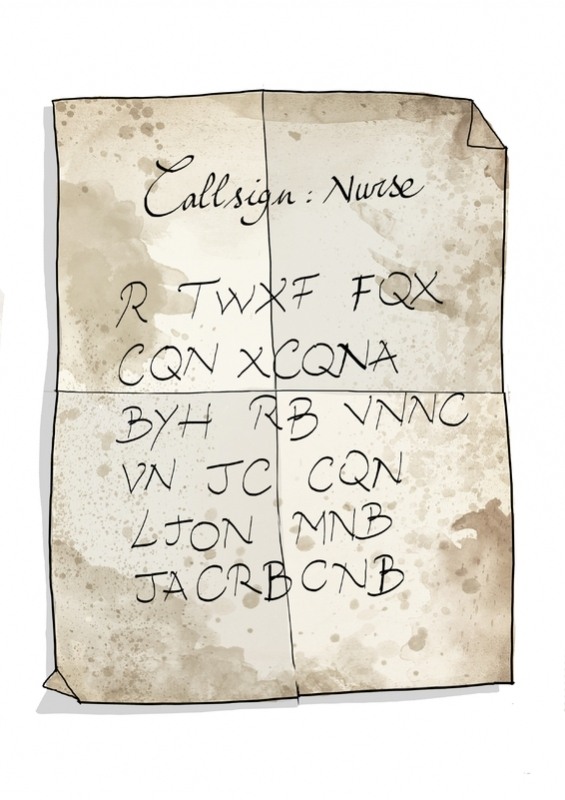 Callsign: Nurse
R TWXF FQX
CQN XCQNA
BYH RB VNNC
VN JC CQN
LJON MNB
JACRBCNB